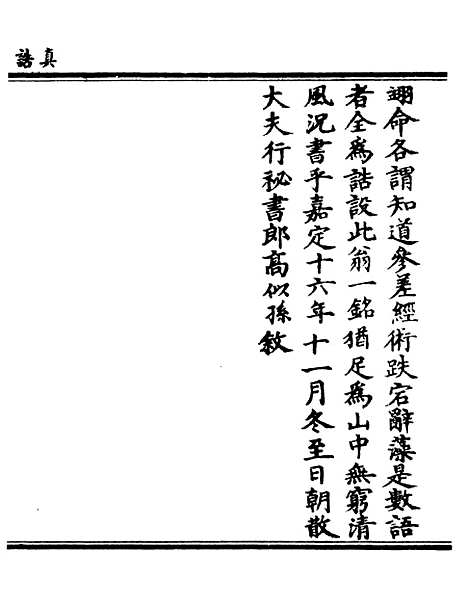 真誥
翊命各謂知道參差經術跌宕辭藻是數語
者全爲誥設此翁一銘猶足爲山中無窮清
風況書乎嘉定十六年十一月冬至日朝散
大夫行祕書郎高似孫敘